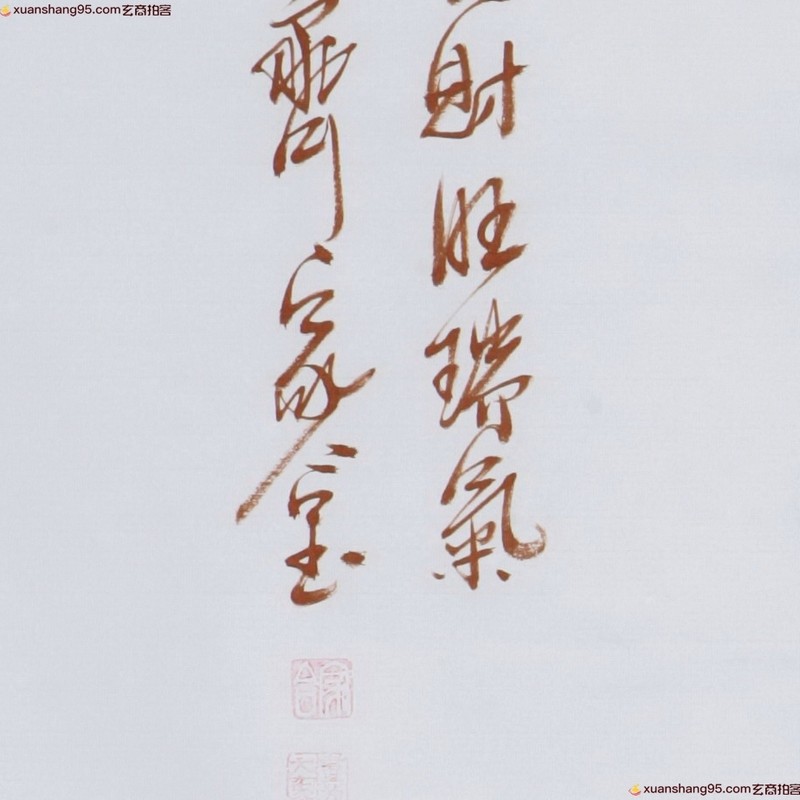 xuanshang95.com玄商拍客
財旺瑞氣
家宝
xuanshang95.com玄商拍客